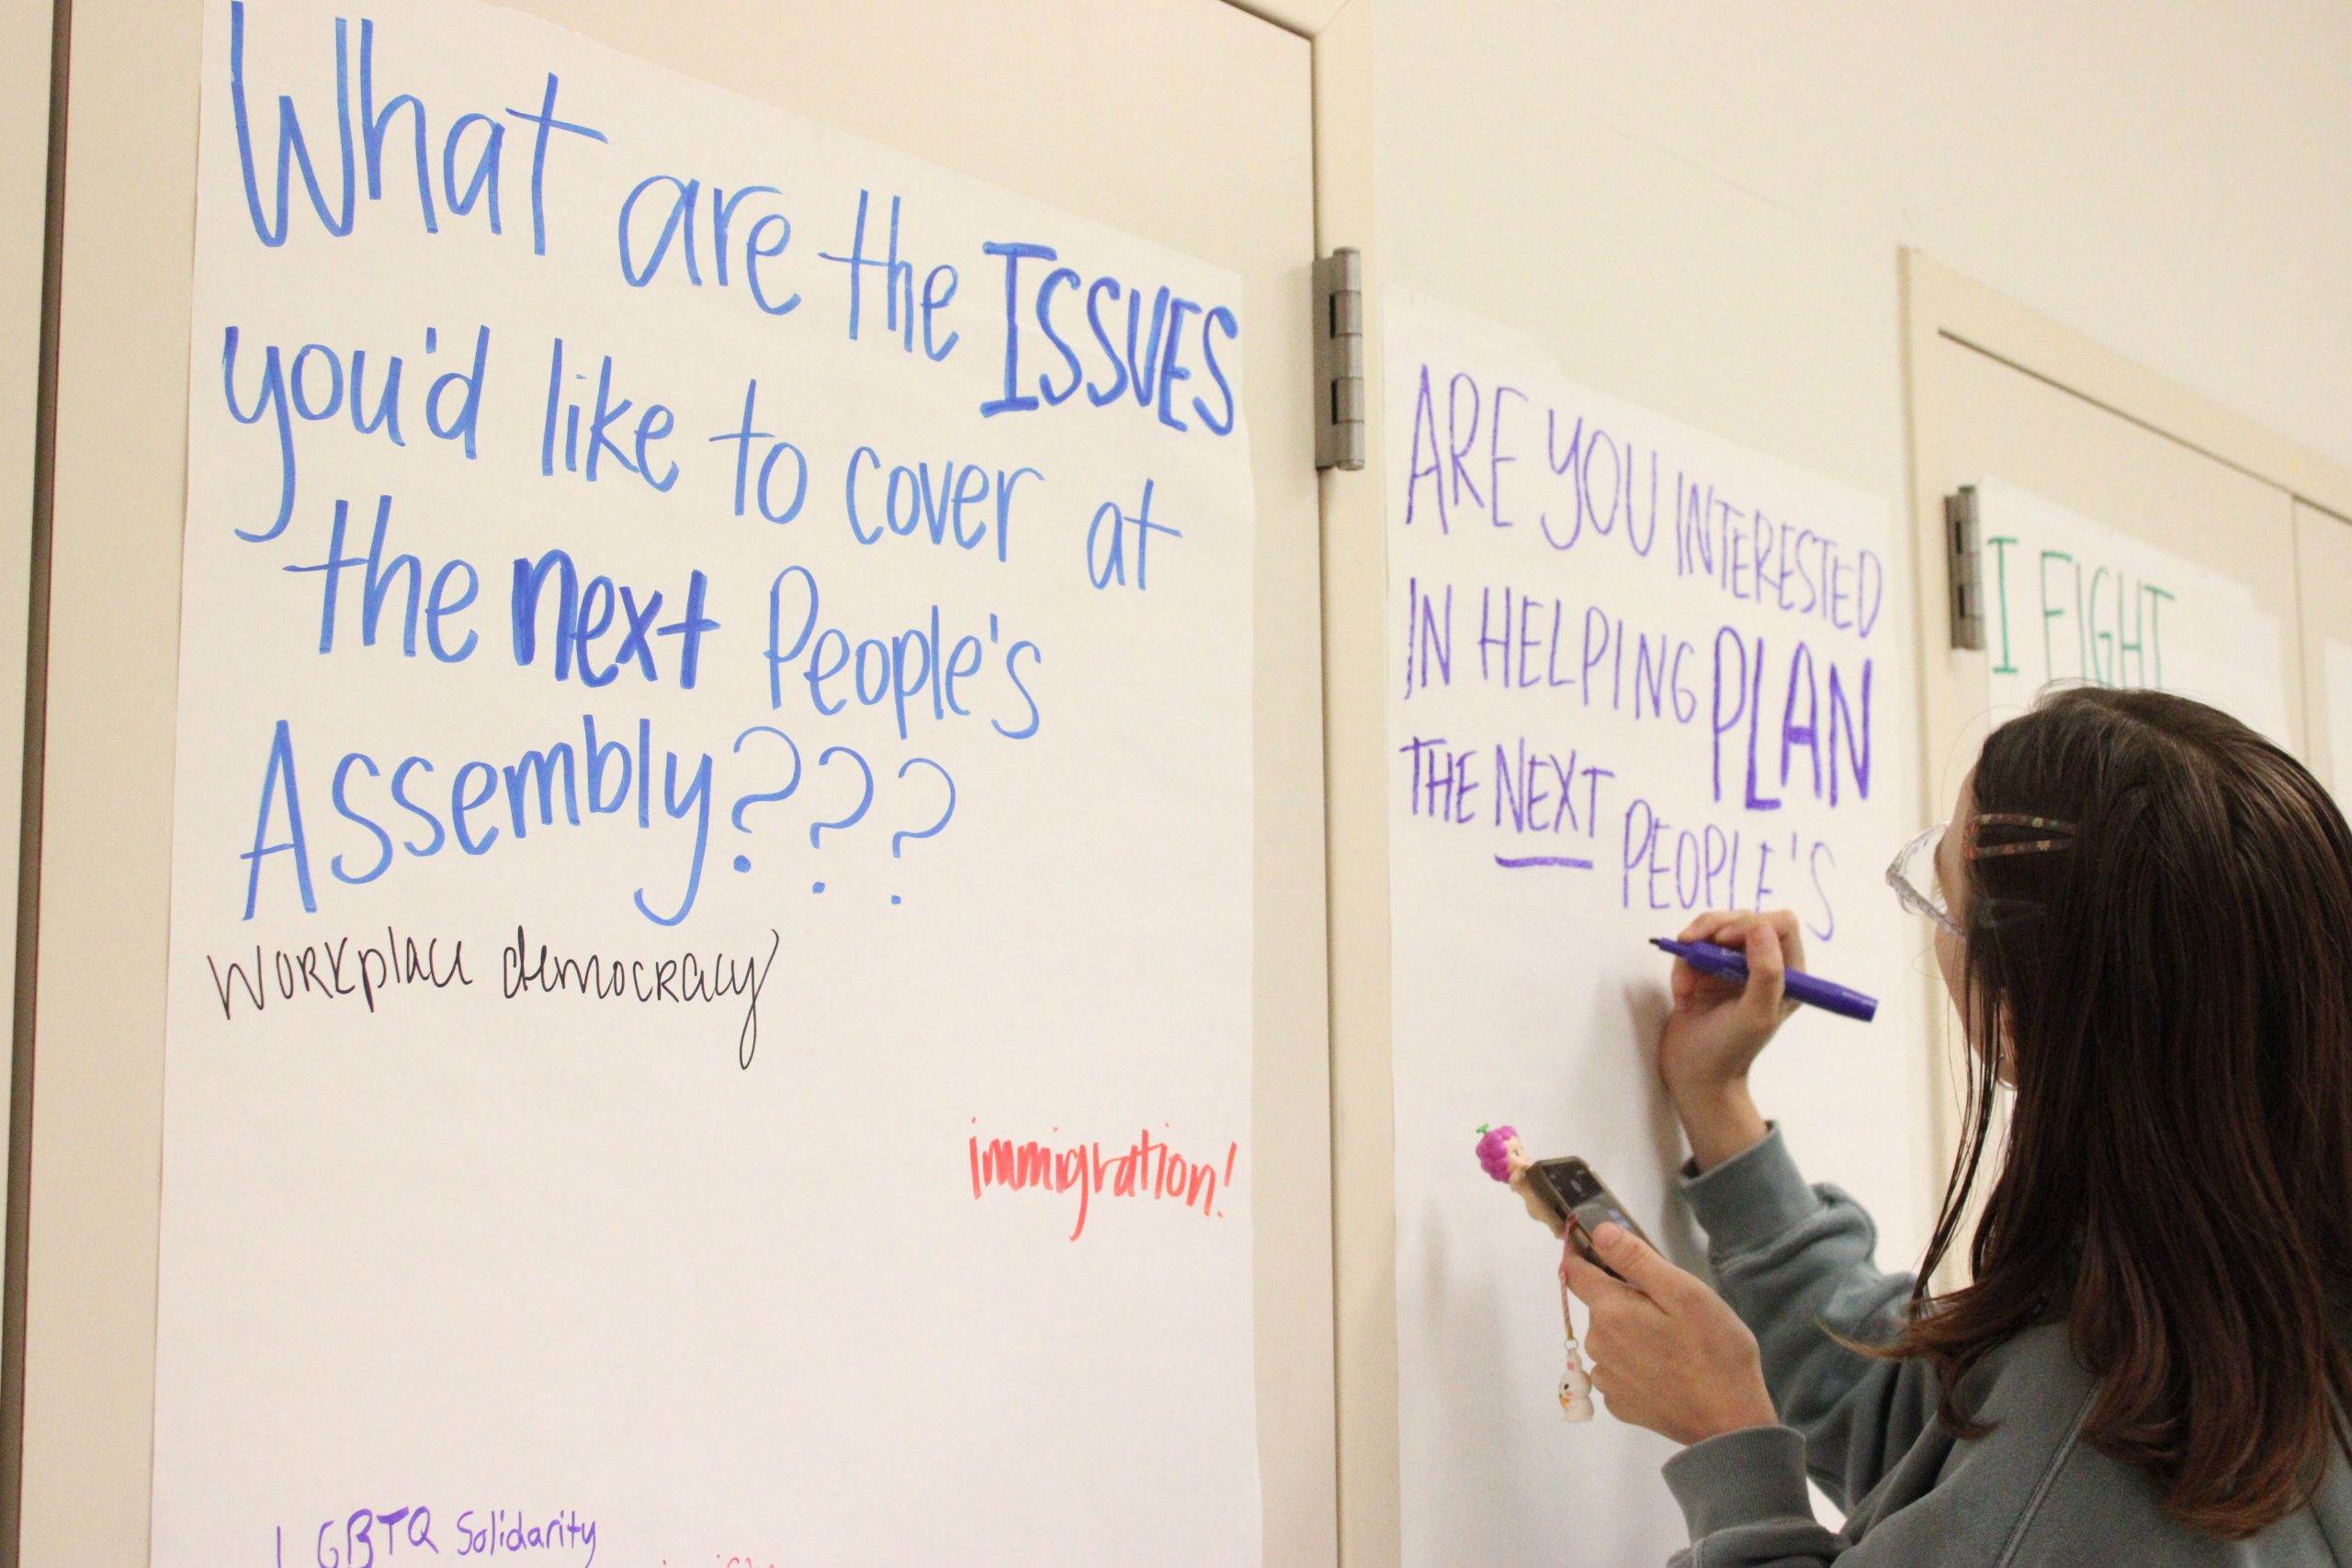 What are the ISSUES
you'd like to cover at
the next People's
Assembly???
Workplace democracy
immigration!
LGBTQ Solidarity
ARE YOU INTERESTED
IN HELPING PLAN
THE NEXT PEOPLE'S
I FIGHT